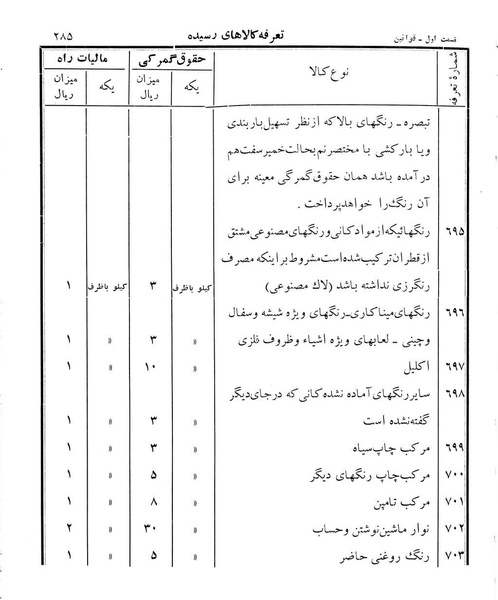 قسمت اول ـ قوانین	تعرفه کالاهای رسیده	۲۸۵
شمارهٔ تعرفه	نوع کالا	حقوق گمرکی	مالیات راه
یکه	میزان ریال	یکه	میزان ریال
تبصره ـ رنگهای بالا که از نظر تسهیل باربندی
و یا بارکشی با مختصر نم بحالت خمیر سفت هم
در آمده باشد همان حقوق گمرکی معینه برای
آن رنگ را خواهد پرداخت .
۶۹۵	رنگهائیکه از مواد کانی و رنگهای مصنوعی مشتق
از قطران ترکیب شده است مشروط بر اینکه مصرف
رنگرزی نداشته باشد (لاك مصنوعی)	کیلو باظرف	۳	کیلو باظرف	۱
۶۹۶	رنگهای میناکاری ـ رنگهای ویژه شیشه و سفال
و چینی ـ لعابهای ویژه اشیاء و ظروف فلزی	»	۳	»	۱
۶۹۷	اکلیل	»	۱۰	»	۱
۶۹۸	سایر رنگهای آماده نشده کانی که در جای دیگر
گفته نشده است	»	۳	»	۱
۶۹۹	مرکب چاپ سیاه	»	۳	»	۱
۷۰۰	مرکب چاپ رنگهای دیگر	»	۵	»	۱
۷۰۱	مرکب تامپن	»	۸	»	۱
۷۰۲	نوار ماشین نوشتن و حساب	»	۳۰	»	۲
۷۰۳	رنگ روغنی حاضر	»	۵	»	۱